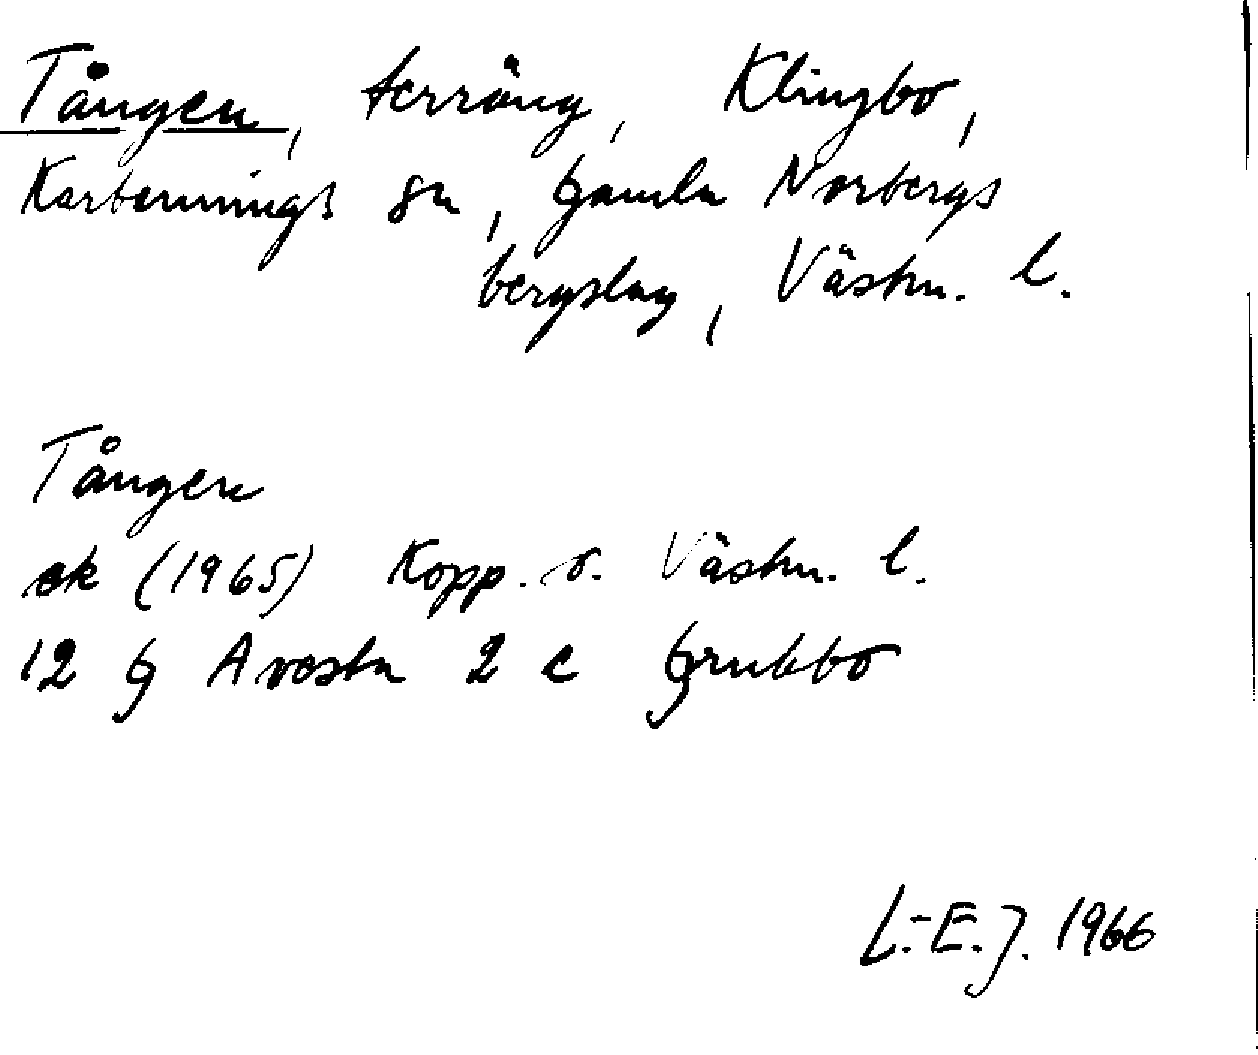 Tången, terräng, Klingbo,
Karbennings sn, Gamla Norbergs
bergslag, Västm. l.
Tången
ek (1965) Kopp. o. Västm. l.
12 G Avesta 2 c Grubbo
L.-E. J. 1966